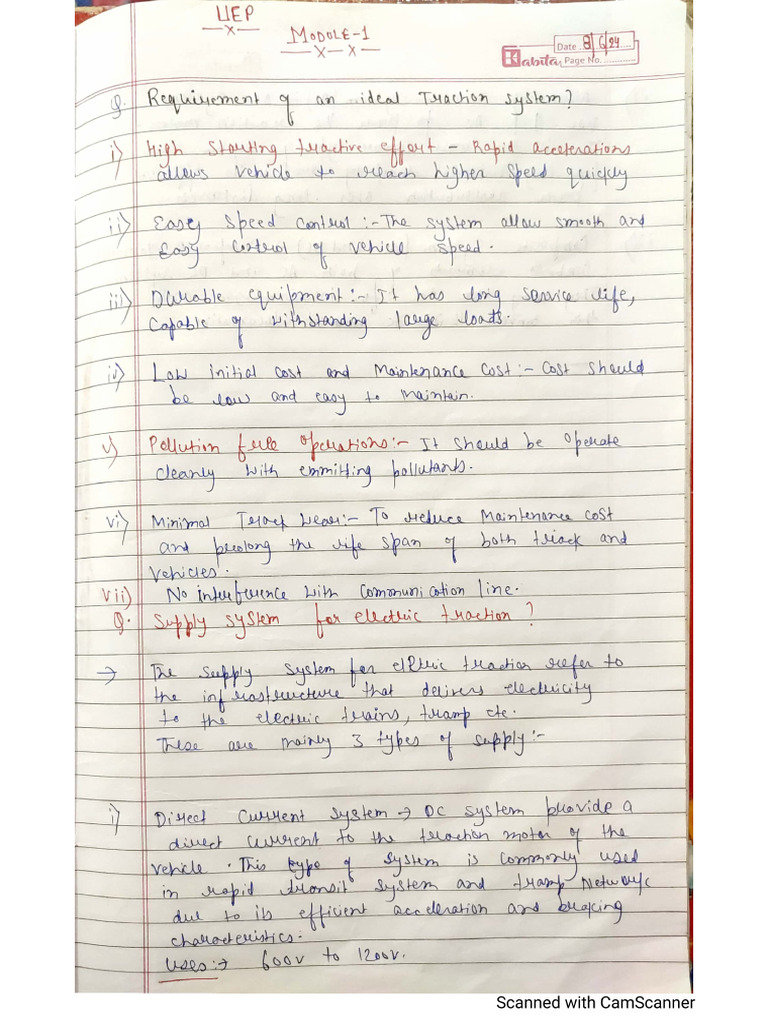 UEP
MODULE-1
Kabita
Date 8/6/24
Page No.
Q. Requirement of an ideal Traction system?
i) High Starting tractive effort - Rapid accelerations
allows vehicle to reach higher speed quickly
ii) Easy Speed control :- The system allow smooth and
Easy control of vehicle speed.
iii) Durable equipment :- It has long service life,
capable of withstanding large loads.
iv) Low initial cost and Maintenance cost :- Cost should
be low and easy to maintain.
v) Pollution free operations :- It should be operate
cleanly with emmitting pollutants.
vi) Minimal Track wear :- To reduce Maintenance cost
and prolong the life span of both track and
vehicles.
vii) No interference with communication line.
Q. Supply system for electric traction?
→ The supply system for electric traction refer to
the infrastructure that delivers electricity
to the electric trains, tramp etc.
These are mainly 3 types of supply :-
i) Direct current system → DC system provide a
direct current to the traction motor of the
vehicle. This type of system is commonly used
in rapid transit system and tramp Network
due to its efficient acceleration and braking
characteristics.
Uses :→ 600v to 1200v.
Scanned with CamScanner